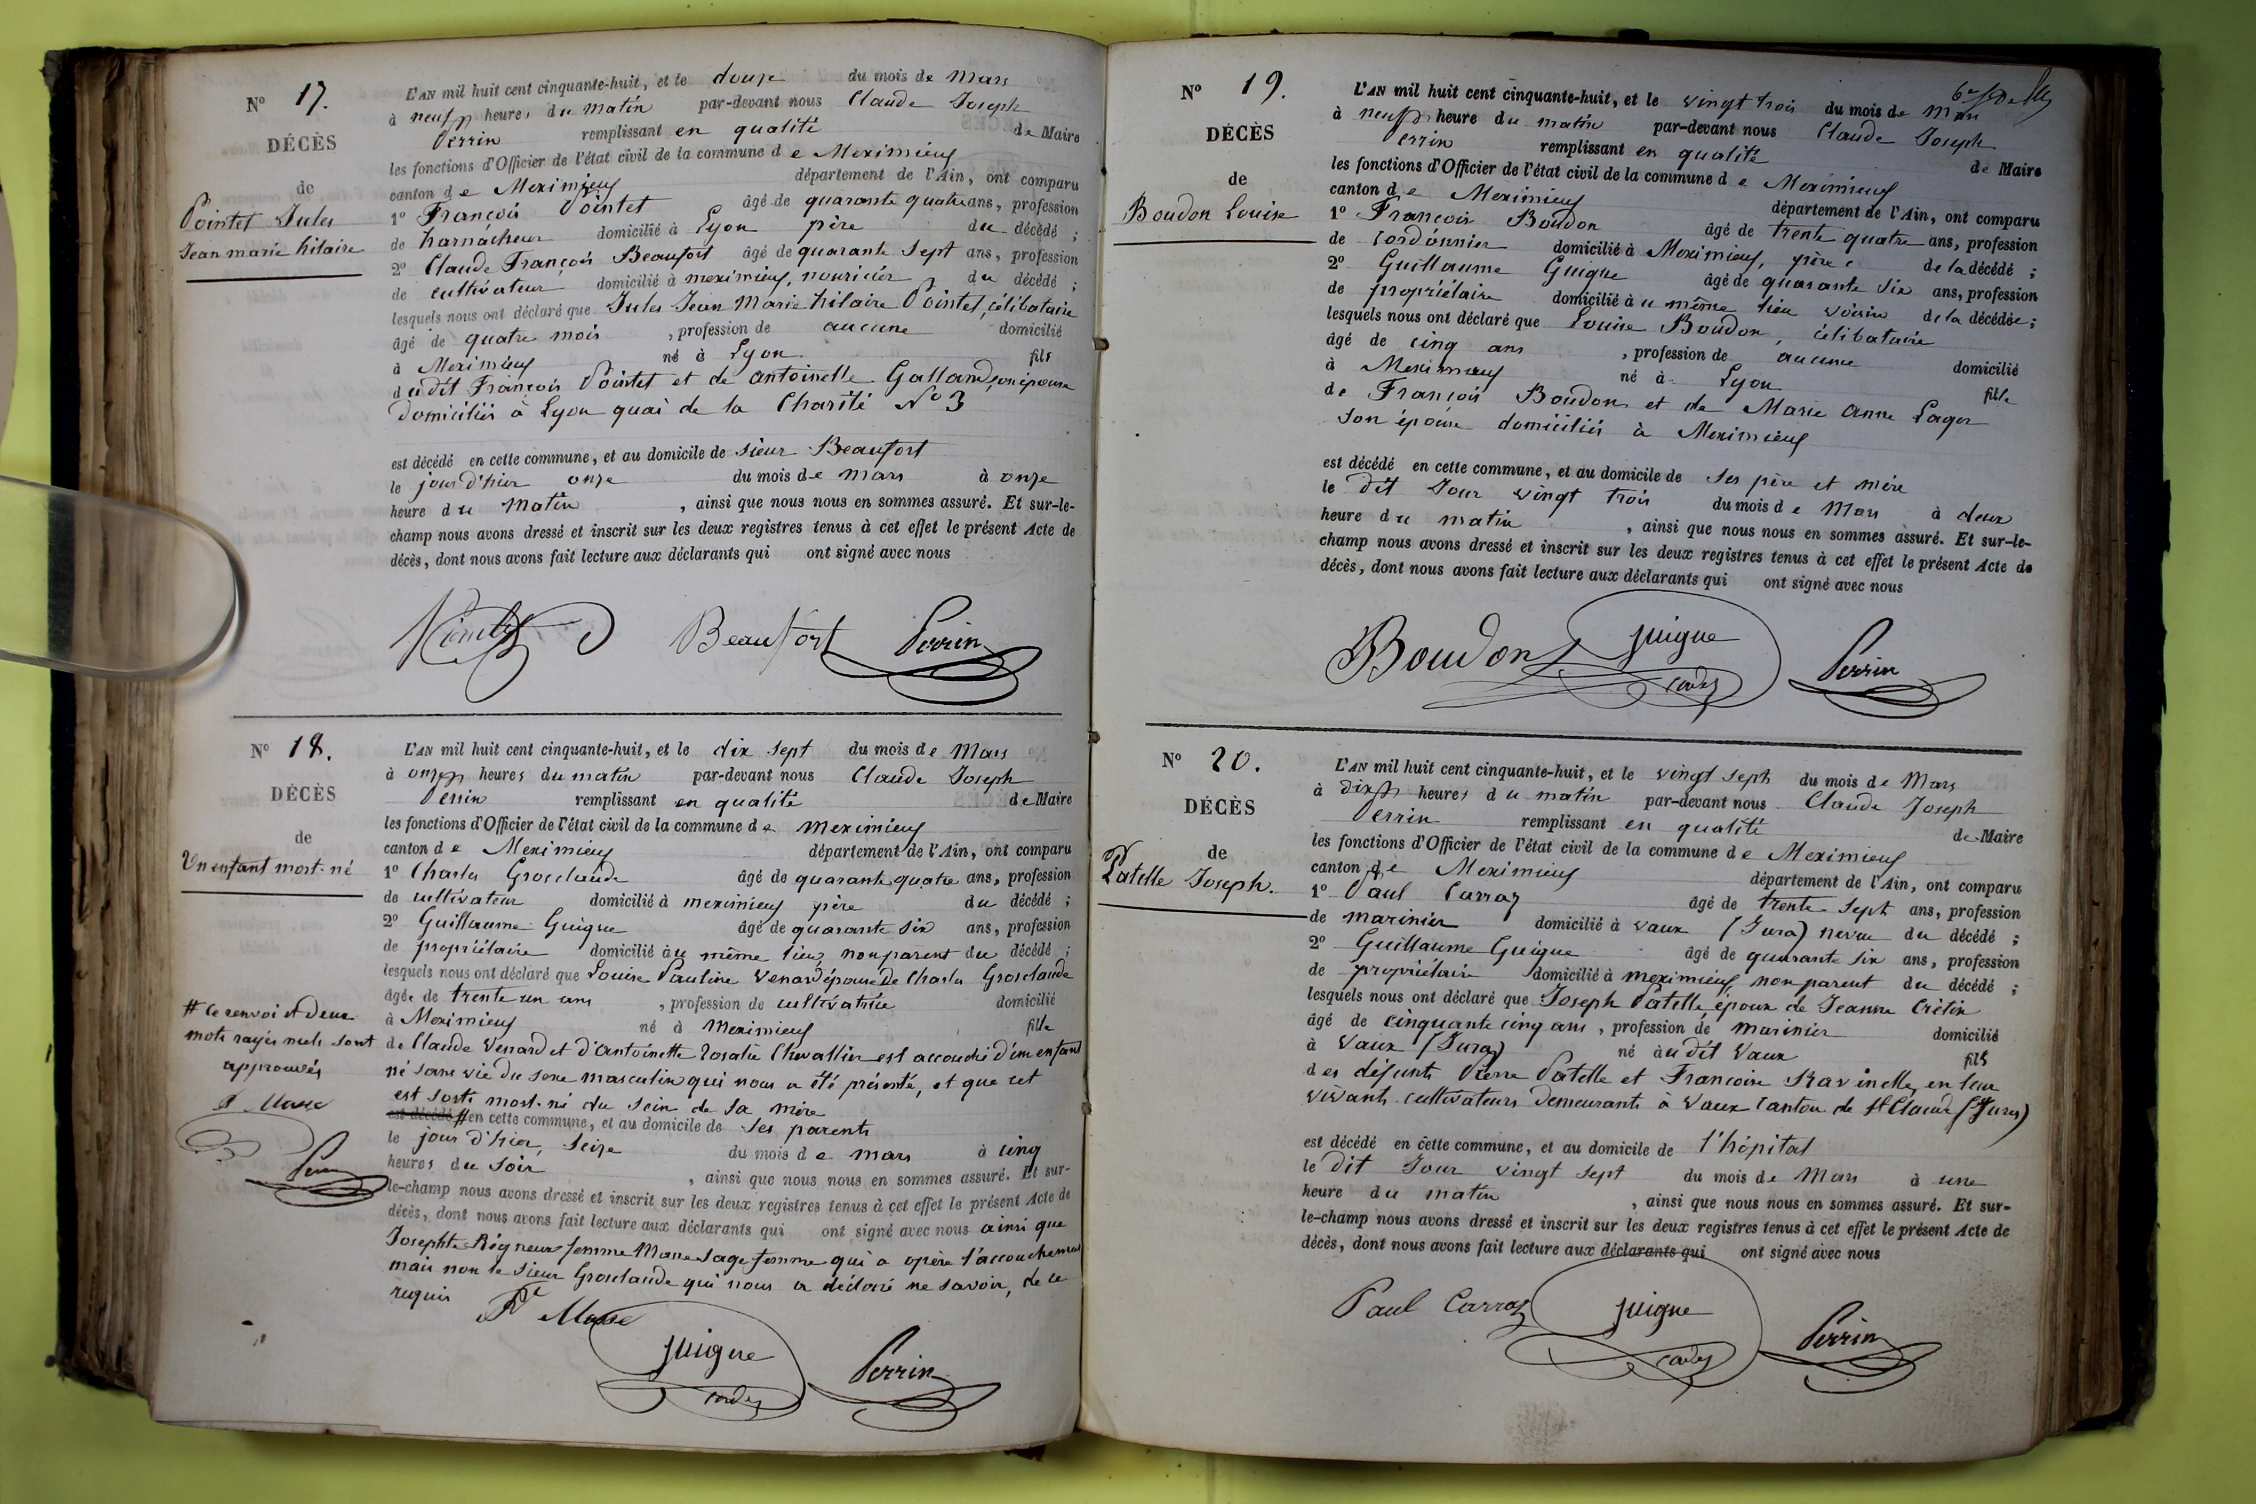 N° 17.
DÉCÈS
de
Pointet Jules
Jean marie hilaire
L'AN mil huit cent cinquante-huit, et le douze du mois de Mars
à neuf heures du matin par-devant nous Claude Joseph
Perrin remplissant en qualité de Maire
les fonctions d'Officier de l'état civil de la commune de Meximieux
canton de Meximieux département de l'Ain, ont comparu
1° François Pointet âgé de quarante quatre ans, profession
de harnacheur domicilié à Lyon père du décédé ;
2° Claude François Beaufort âgé de quarante sept ans, profession
de cultivateur domicilié à meximieux, nouricier du décédé ;
lesquels nous ont déclaré que Jules Jean Marie hilaire Pointet, célibataire
âgé de quatre mois , profession de aucune domicilié
à Meximieux né à Lyon fils
dudit François Pointet et de antoinette Galland, son épouse
Domiciliés à Lyon quai de la Charité N° 3
est décédé en cette commune, et au domicile de sieur Beaufort
le jour d'hier onze du mois de mars à onze
heure du Matin , ainsi que nous nous en sommes assuré. Et sur-le-
champ nous avons dressé et inscrit sur les deux registres tenus à cet effet le présent Acte de
décès, dont nous avons fait lecture aux déclarants qui ont signé avec nous
Beaufort Perrin
N° 18.
DÉCÈS
de
Un enfant mort-né
# ce renvoi et deux
mots rayés nuls sont
approuvés
L'AN mil huit cent cinquante-huit, et le dix sept du mois de Mars
à onze heures du matin par-devant nous Claude Joseph
Perrin remplissant en qualité de Maire
les fonctions d'Officier de l'état civil de la commune de meximieux
canton de Meximieux département de l'Ain, ont comparu
1° Charles Grosclaude âgé de quarante quatre ans, profession
de cultivateur domicilié à meximieux père du décédé ;
2° Guillaume Guigue âgé de quarante six ans, profession
de propriétaire domicilié au même lieu, non parent du décédé ;
lesquels nous ont déclaré que Louise Pauline Venard épouse de Charles Grosclaude
âgée de trente un ans , profession de cultivatrice domicilié
à Meximieux né à Meximieux fille
de Claude Venard et d'Antoinette Rosalie Chevallier est accouché d'un enfant
né sans vie du sexe masculin qui nous a été présenté, et que cet
est sorti mort-né du sein de sa mère
est décédé # en cette commune, et au domicile de ses parents
le jour d'hier, seize du mois de mars à cinq
heures du soir , ainsi que nous nous en sommes assuré. Et sur-
le-champ nous avons dressé et inscrit sur les deux registres tenus à cet effet le présent Acte de
décès, dont nous avons fait lecture aux déclarants qui ont signé avec nous ainsi que
femme sage femme qui a opéré l'accouchement
mais non le sieur Grosclaude qui nous a déclaré ne savoir, de ce
requis
Guigue Perrin
N° 19.
DÉCÈS
de
Boudon Louise
L'AN mil huit cent cinquante-huit, et le vingt trois du mois de Mars
à neuf heure du matin par-devant nous Claude Joseph
Perrin remplissant en qualité de Maire
les fonctions d'Officier de l'état civil de la commune de Meximieux
canton de Meximieux département de l'Ain, ont comparu
1° François Boudon âgé de trente quatre ans, profession
de cordonnier domicilié à Meximieux, père de la décédé ;
2° Guillaume Guigue âgé de quarante six ans, profession
de propriétaire domicilié au même lieu voisin de la décédée ;
lesquels nous ont déclaré que Louise Boudon, célibataire
âgé de cinq ans , profession de aucune domicilié
à Meximieux né à Lyon fille
de François Boudon et de Marie Anne Lager
son épouse domiciliés à Meximieux
est décédé en cette commune, et au domicile de ses père et mère
le dit Jour vingt trois du mois de Mars à deux
heure du matin , ainsi que nous nous en sommes assuré. Et sur-le-
champ nous avons dressé et inscrit sur les deux registres tenus à cet effet le présent Acte de
décès, dont nous avons fait lecture aux déclarants qui ont signé avec nous
Boudon Guigue Perrin
N° 20.
DÉCÈS
de
Patelle Joseph.
L'AN mil huit cent cinquante-huit, et le vingt sept du mois de Mars
à dix heures du matin par-devant nous Claude Joseph
Perrin remplissant en qualité de Maire
les fonctions d'Officier de l'état civil de la commune de Meximieux
canton de Meximieux département de l'Ain, ont comparu
1° Paul Carraz âgé de trente sept ans, profession
de marinier domicilié à Vaux (Jura) neveu du décédé ;
2° Guillaume Guigue âgé de quarante six ans, profession
de propriétaire domicilié à meximieux non parent du décédé ;
lesquels nous ont déclaré que Joseph Patelle époux de Jeanne Crétin
âgé de cinquante cinq ans , profession de marinier domicilié
à Vaux (Jura) né au dit Vaux fils
des défunts Pierre Patelle et Francoise Ravinelle, en leur
vivants cultivateurs demeurants à Vaux Canton de St Claude (Jura)
est décédé en cette commune, et au domicile de l'hôpital
le dit Jour vingt sept du mois de Mars à une
heure du matin , ainsi que nous nous en sommes assuré. Et sur-
le-champ nous avons dressé et inscrit sur les deux registres tenus à cet effet le présent Acte de
décès, dont nous avons fait lecture aux déclarants qui ont signé avec nous
Paul Carraz Guigue Perrin